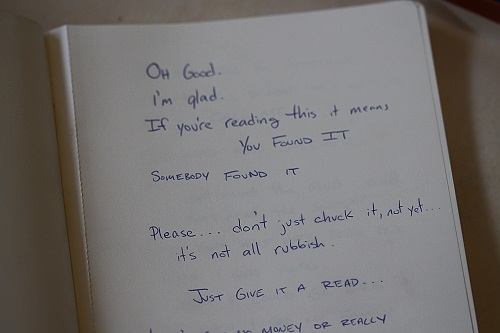 Oh Good.
I'm glad.
If you're reading this it means
You Found IT
Somebody found it
Please... don't just chuck it, not yet...
it's not all rubbish.
Just give it a read...
money or really